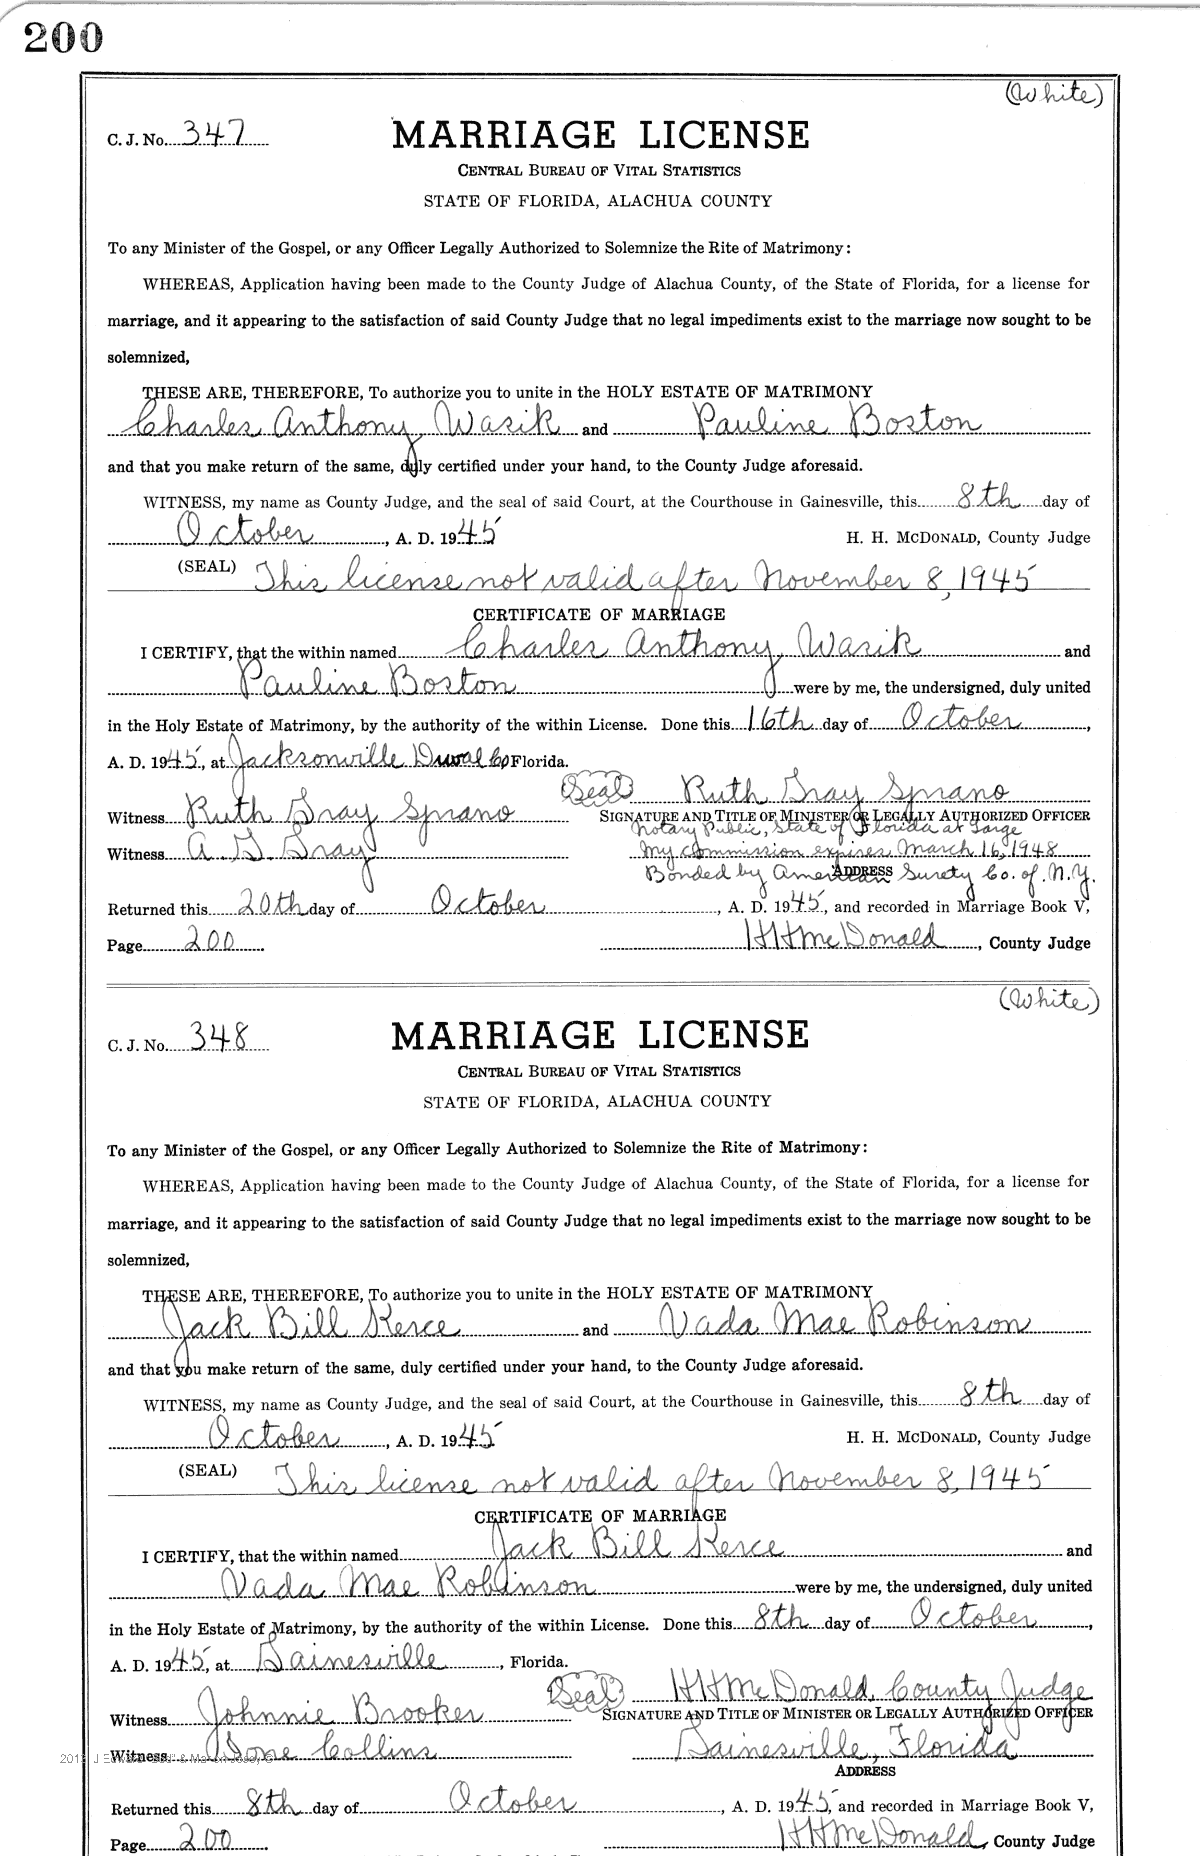 200
(White)
C. J. No. 347
MARRIAGE LICENSE
CENTRAL BUREAU OF VITAL STATISTICS
STATE OF FLORIDA, ALACHUA COUNTY
To any Minister of the Gospel, or any Officer Legally Authorized to Solemnize the Rite of Matrimony:
WHEREAS, Application having been made to the County Judge of Alachua County, of the State of Florida, for a license for
marriage, and it appearing to the satisfaction of said County Judge that no legal impediments exist to the marriage now sought to be
solemnized,
THESE ARE, THEREFORE, To authorize you to unite in the HOLY ESTATE OF MATRIMONY
Charles Anthony Wasik and Pauline Boston
and that you make return of the same, duly certified under your hand, to the County Judge aforesaid.
WITNESS, my name as County Judge, and the seal of said Court, at the Courthouse in Gainesville, this 8th day of
October, A. D. 1945 H. H. MCDONALD, County Judge
(SEAL) This license not valid after November 8, 1945
CERTIFICATE OF MARRIAGE
I CERTIFY, that the within named Charles Anthony Wasik and
Pauline Boston were by me, the undersigned, duly united
in the Holy Estate of Matrimony, by the authority of the within License. Done this 16th day of October,
A. D. 1945, at Jacksonville Duval Co Florida.
Seal Ruth Gray Sprano
Witness Ruth Gray Sprano SIGNATURE AND TITLE OF MINISTER OR LEGALLY AUTHORIZED OFFICER
Notary Public, State of Florida at Large
Witness A. G. Gray My commission expires March 16, 1948
ADDRESS
Bonded by American Surety Co. of N.Y.
Returned this 20th day of October, A. D. 1945, and recorded in Marriage Book V,
Page 200 HH McDonald, County Judge
(White)
C. J. No. 348
MARRIAGE LICENSE
CENTRAL BUREAU OF VITAL STATISTICS
STATE OF FLORIDA, ALACHUA COUNTY
To any Minister of the Gospel, or any Officer Legally Authorized to Solemnize the Rite of Matrimony:
WHEREAS, Application having been made to the County Judge of Alachua County, of the State of Florida, for a license for
marriage, and it appearing to the satisfaction of said County Judge that no legal impediments exist to the marriage now sought to be
solemnized,
THESE ARE, THEREFORE, To authorize you to unite in the HOLY ESTATE OF MATRIMONY
Jack Bill Kerce and Vada Mae Robinson
and that you make return of the same, duly certified under your hand, to the County Judge aforesaid.
WITNESS, my name as County Judge, and the seal of said Court, at the Courthouse in Gainesville, this 8th day of
October, A. D. 1945 H. H. MCDONALD, County Judge
(SEAL) This license not valid after November 8, 1945
CERTIFICATE OF MARRIAGE
I CERTIFY, that the within named Jack Bill Kerce and
Vada Mae Robinson were by me, the undersigned, duly united
in the Holy Estate of Matrimony, by the authority of the within License. Done this 8th day of October,
A. D. 1945, at Gainesville, Florida.
Seal HH McDonald, County Judge
Witness Johnnie Brooker SIGNATURE AND TITLE OF MINISTER OR LEGALLY AUTHORIZED OFFICER
Witness Collins Gainesville, Florida
ADDRESS
Returned this 8th day of October, A. D. 1945, and recorded in Marriage Book V,
Page 200 HH McDonald, County Judge